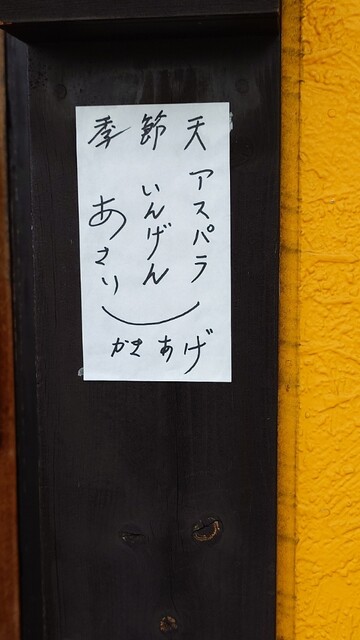 季節天
アスパラ
いんげん
あさり
かきあげ